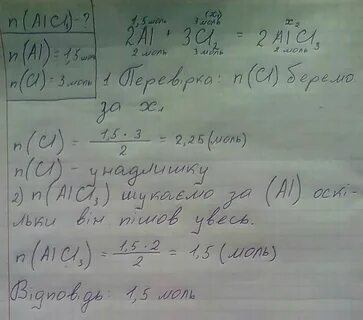 n(AlCl₃)-?
n(Al)=1,5 моль
n(Cl)=3 моль
1,5 моль 3 моль (x₁) x₂
2Al + 3Cl₂ = 2AlCl₃
2 моль 3 моль 2 моль
1 Перевірка: n(Cl) беремо
за x₁
n(Cl) = 1,5·3/2 = 2,25(моль)
n(Cl) - у надлишку
2) n(AlCl₃) шукаємо за (Al) оскі-
льки він пішов увесь.
n(AlCl₃) = 1,5·2/2 = 1,5 (моль)
Відповідь: 1,5 моль